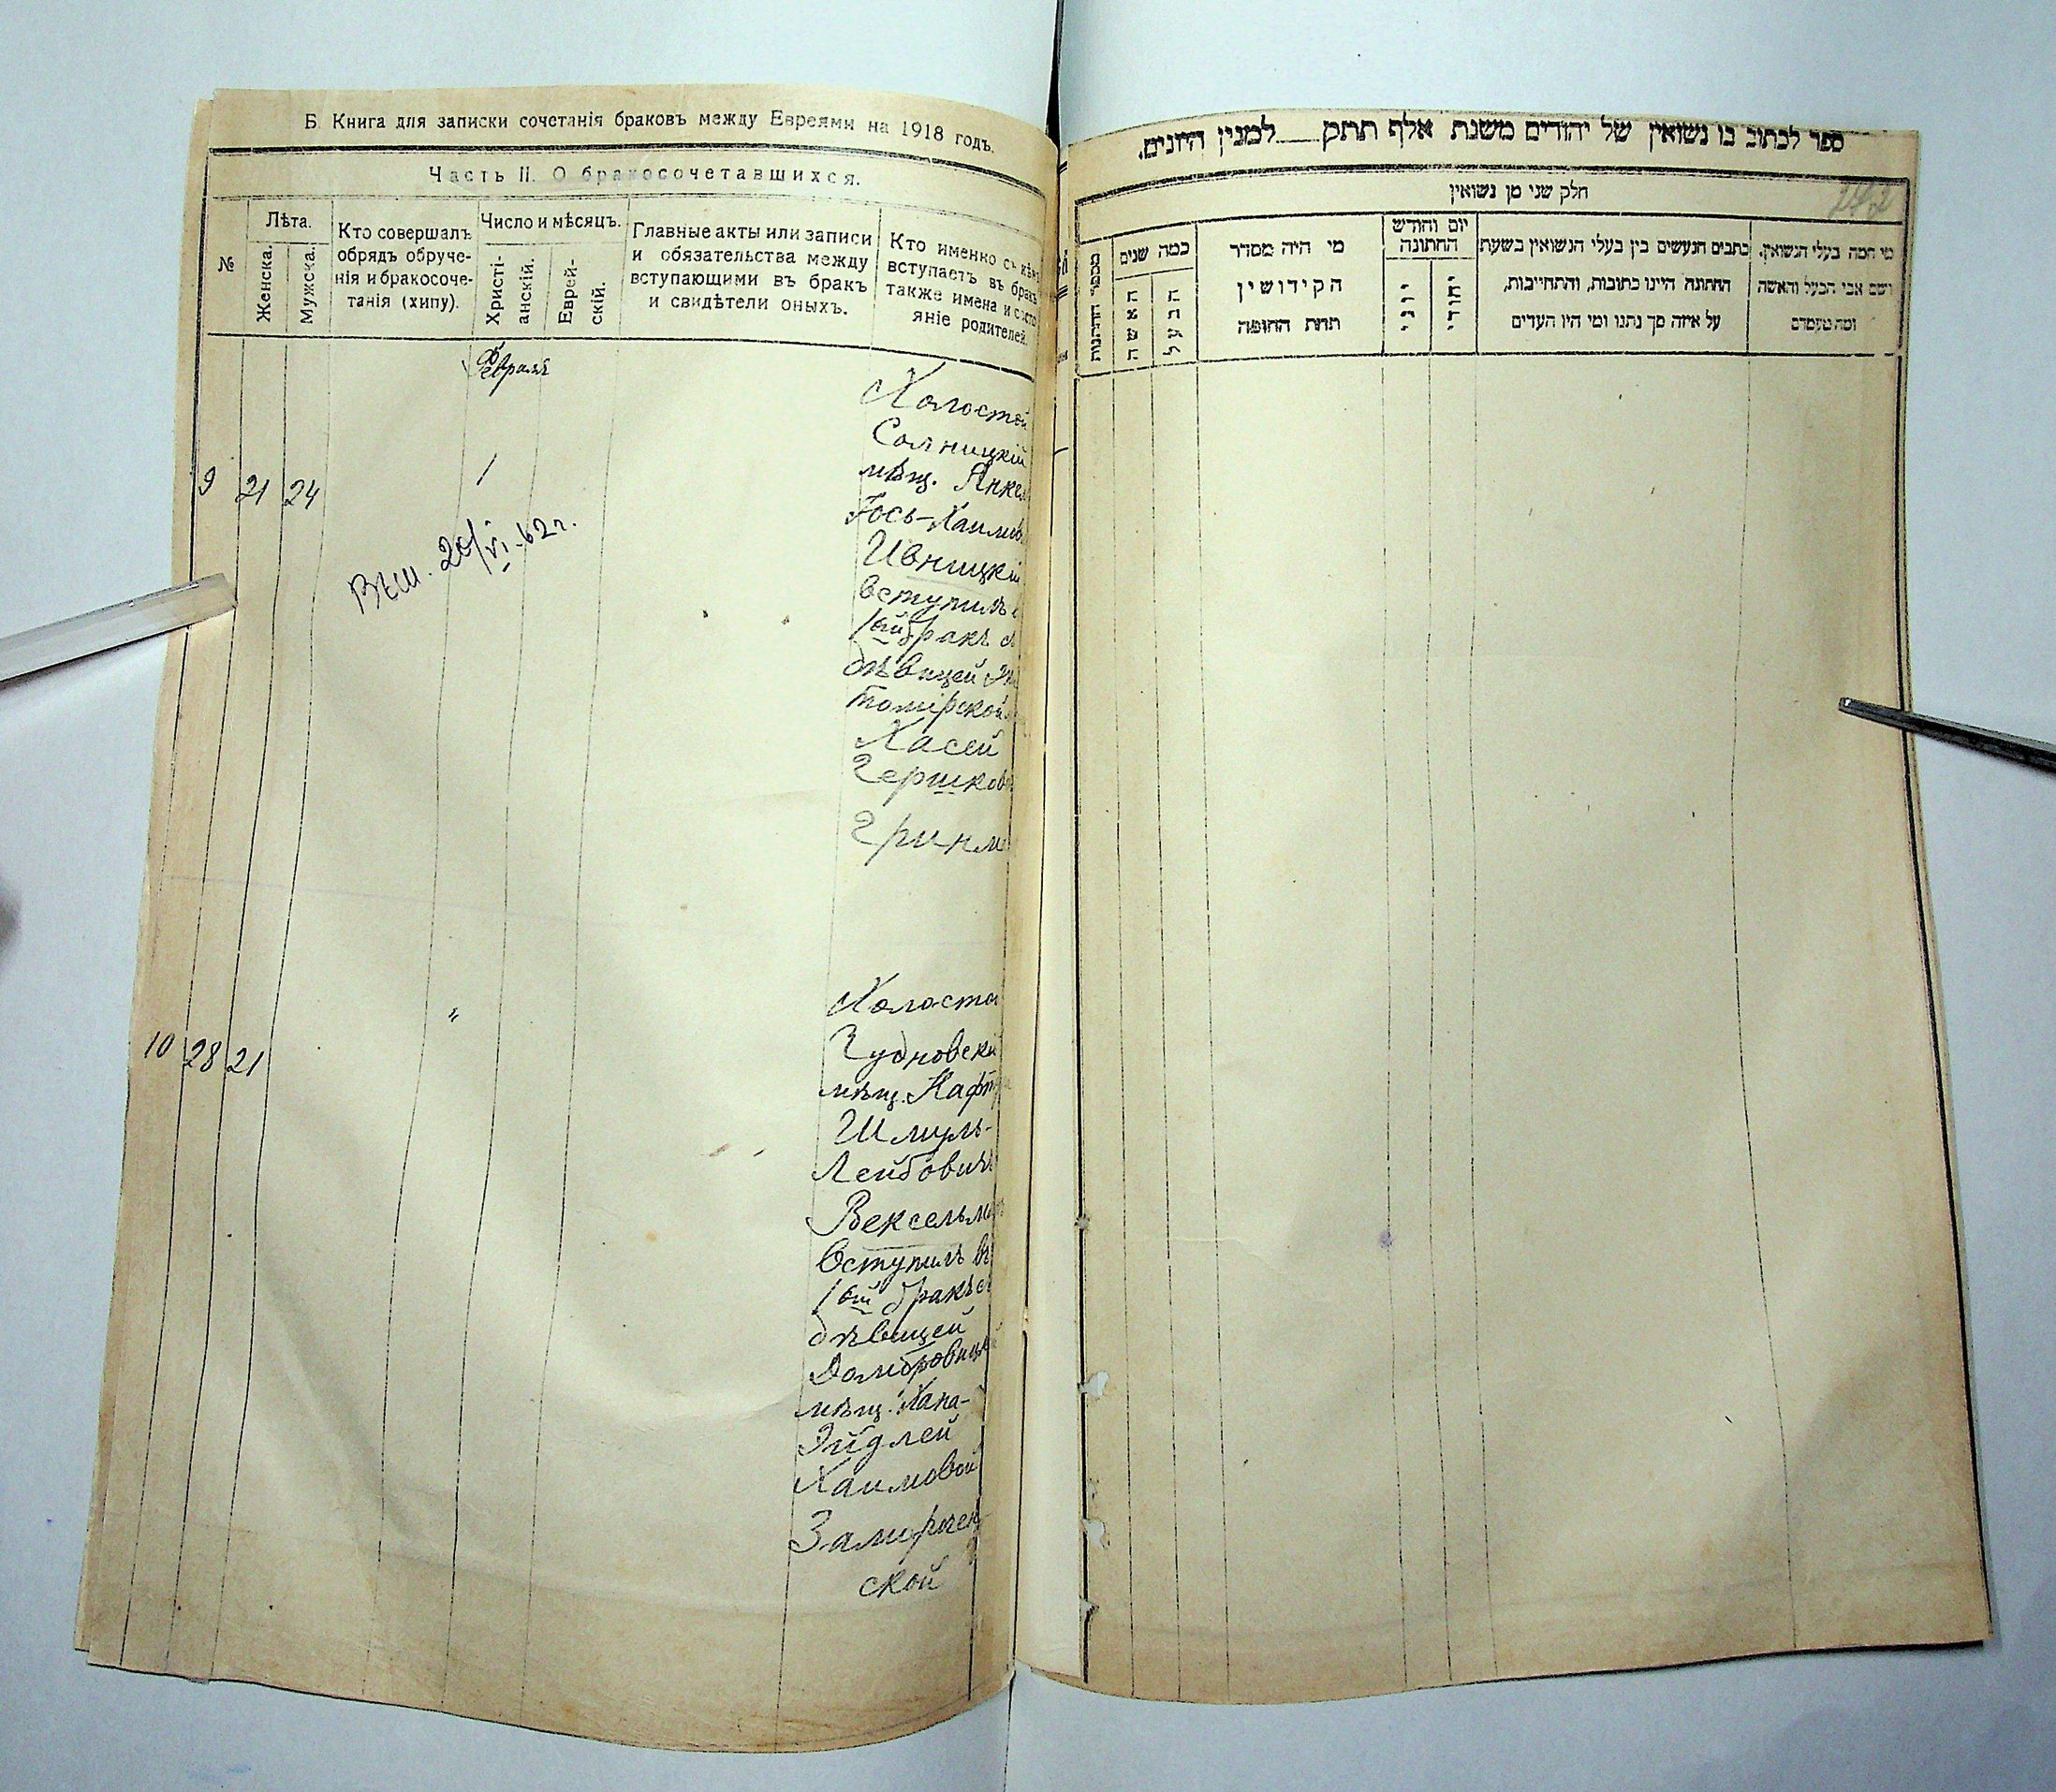 Б. Книга для записки сочетанія браковъ между Евреями на 1918 годъ.
Часть II. О бракосочетавшихся.
№
Лѣта.
Женска.
Мужска.
Кто совершалъ
обрядъ обруче-
нія и бракосоче-
танія (хипу).
Число и мѣсяцъ.
Христі-
анскій.
Еврей-
скій.
Главные акты или записи
и обязательства между
вступающими въ бракъ
и свидѣтели оныхъ.
Кто именно съ кѣмъ
вступаетъ въ бракъ
также имена и состо
яніе родителей.
Февраль
9 21 24
1
Холостой
мѣщ. Янкел
Іось-Хаимов
Ивницкій
вступилъ
1ый бракъ с
дѣвицей Жи
томірской
Хасей
Гершков
Гринм
Выш. 20/VI-62г.
10 28 21
"
Холосто
Чудновскій
мѣщ. Нафт
Шмуль-
Лейбович
Вексельма
вступилъ въ
1ый бракъ с
дѣвицей
Домбровиц
мѣщ. Хана-
Эйдлей
Хаимовой
ской
ספר לכתוב בו נשואין של יהודים משנת אלף תתק למנין היונים.
חלק שני מן נשואין
מי המה בעלי הנשואין,
ושם אבי הבעל והאשה
ומה מעמדם
כתבים הנעשים בין בעלי הנשואין בשעת
החתונה היינו כתובות, והתחייבות,
על איזה סך נתנו ומי היו העדים
יום וחודש
החתונה
יהודי
יוני
מי היה מסדר
הקידושין
תחת החופה
כמה שנים
הבעל
האשה
מספר החתונות